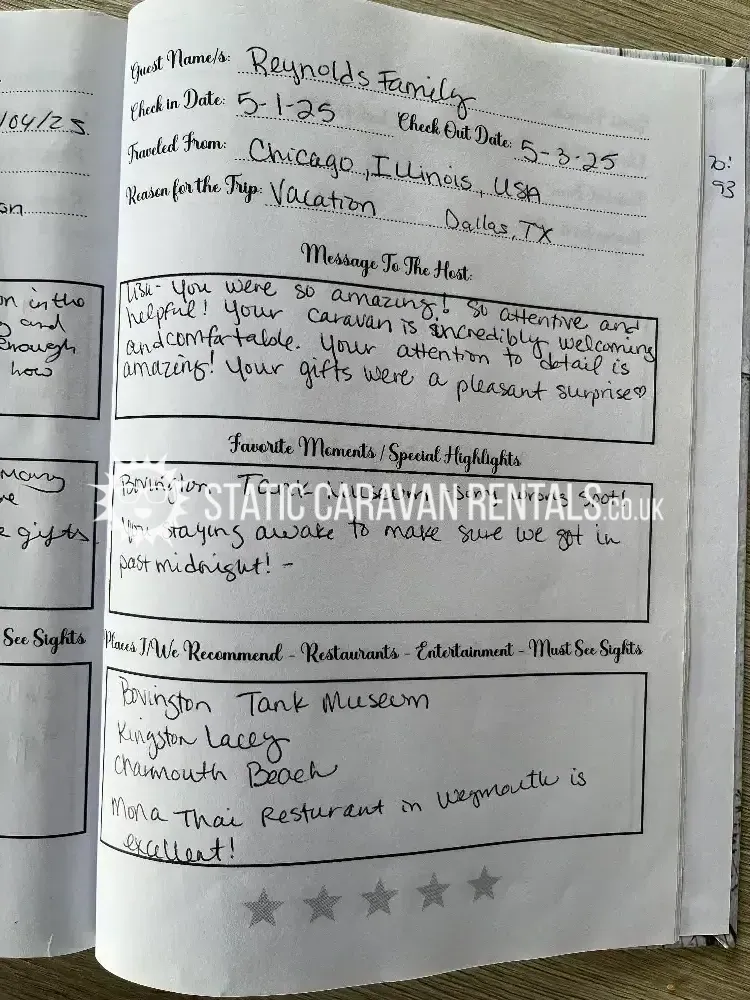 /04/25
an
on in the
g and
enough
how
many
re
e gifts
See Sights
Guest Name/s: Reynolds Family
Check in Date: 5-1-25 Check Out Date: 5-3-25
Traveled From: Chicago, Illinois, USA
Reason for the Trip: Vacation Dallas, TX
Message To The Host:
You were so amazing! So attentive and
helpful! Your caravan is incredibly welcoming
and comfortable. Your attention to detail is
amazing! Your gifts were a pleasant surprise♡
Favorite Moments / Special Highlights
Bovington Tank Museum spot!
STATIC CARAVAN RENTALS.co.uk
staying awake to make sure we got in
past midnight! -
Places I/We Recommend - Restaurants - Entertainment - Must See Sights
Bovington Tank Museum
Kingston Lacey
Charmouth Beach
Mona Thai Resturant in Weymouth is
excellent!
93